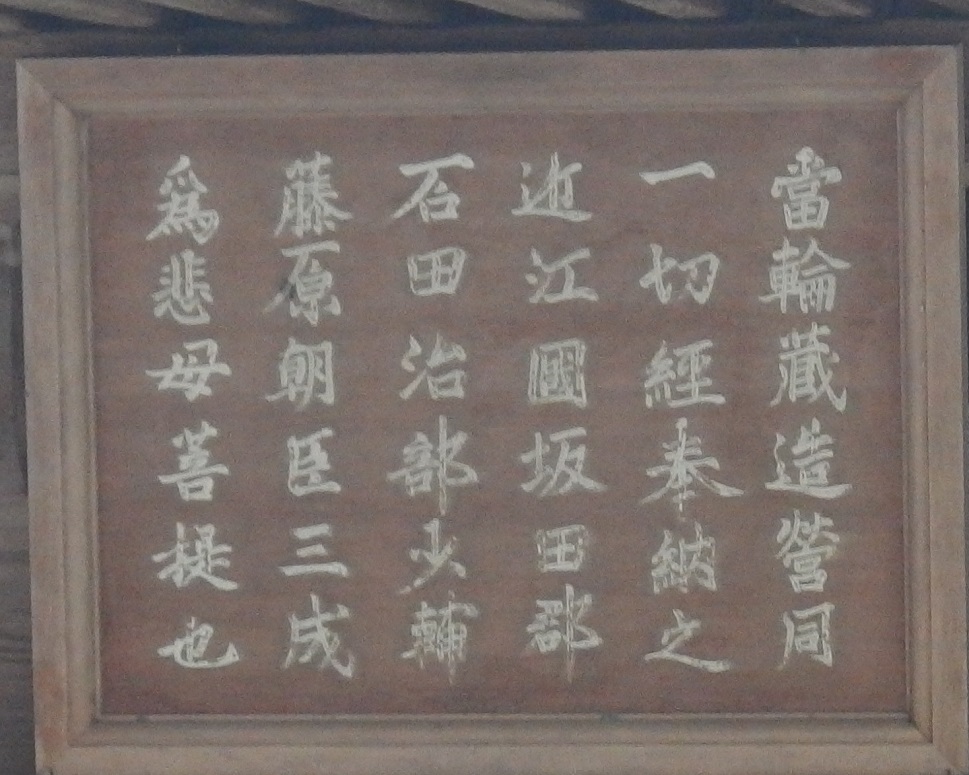 當輪藏造營同
一切經奉納之
近江國坂田郡
石田治部少輔
藤原朝臣三成
爲悲母菩提也